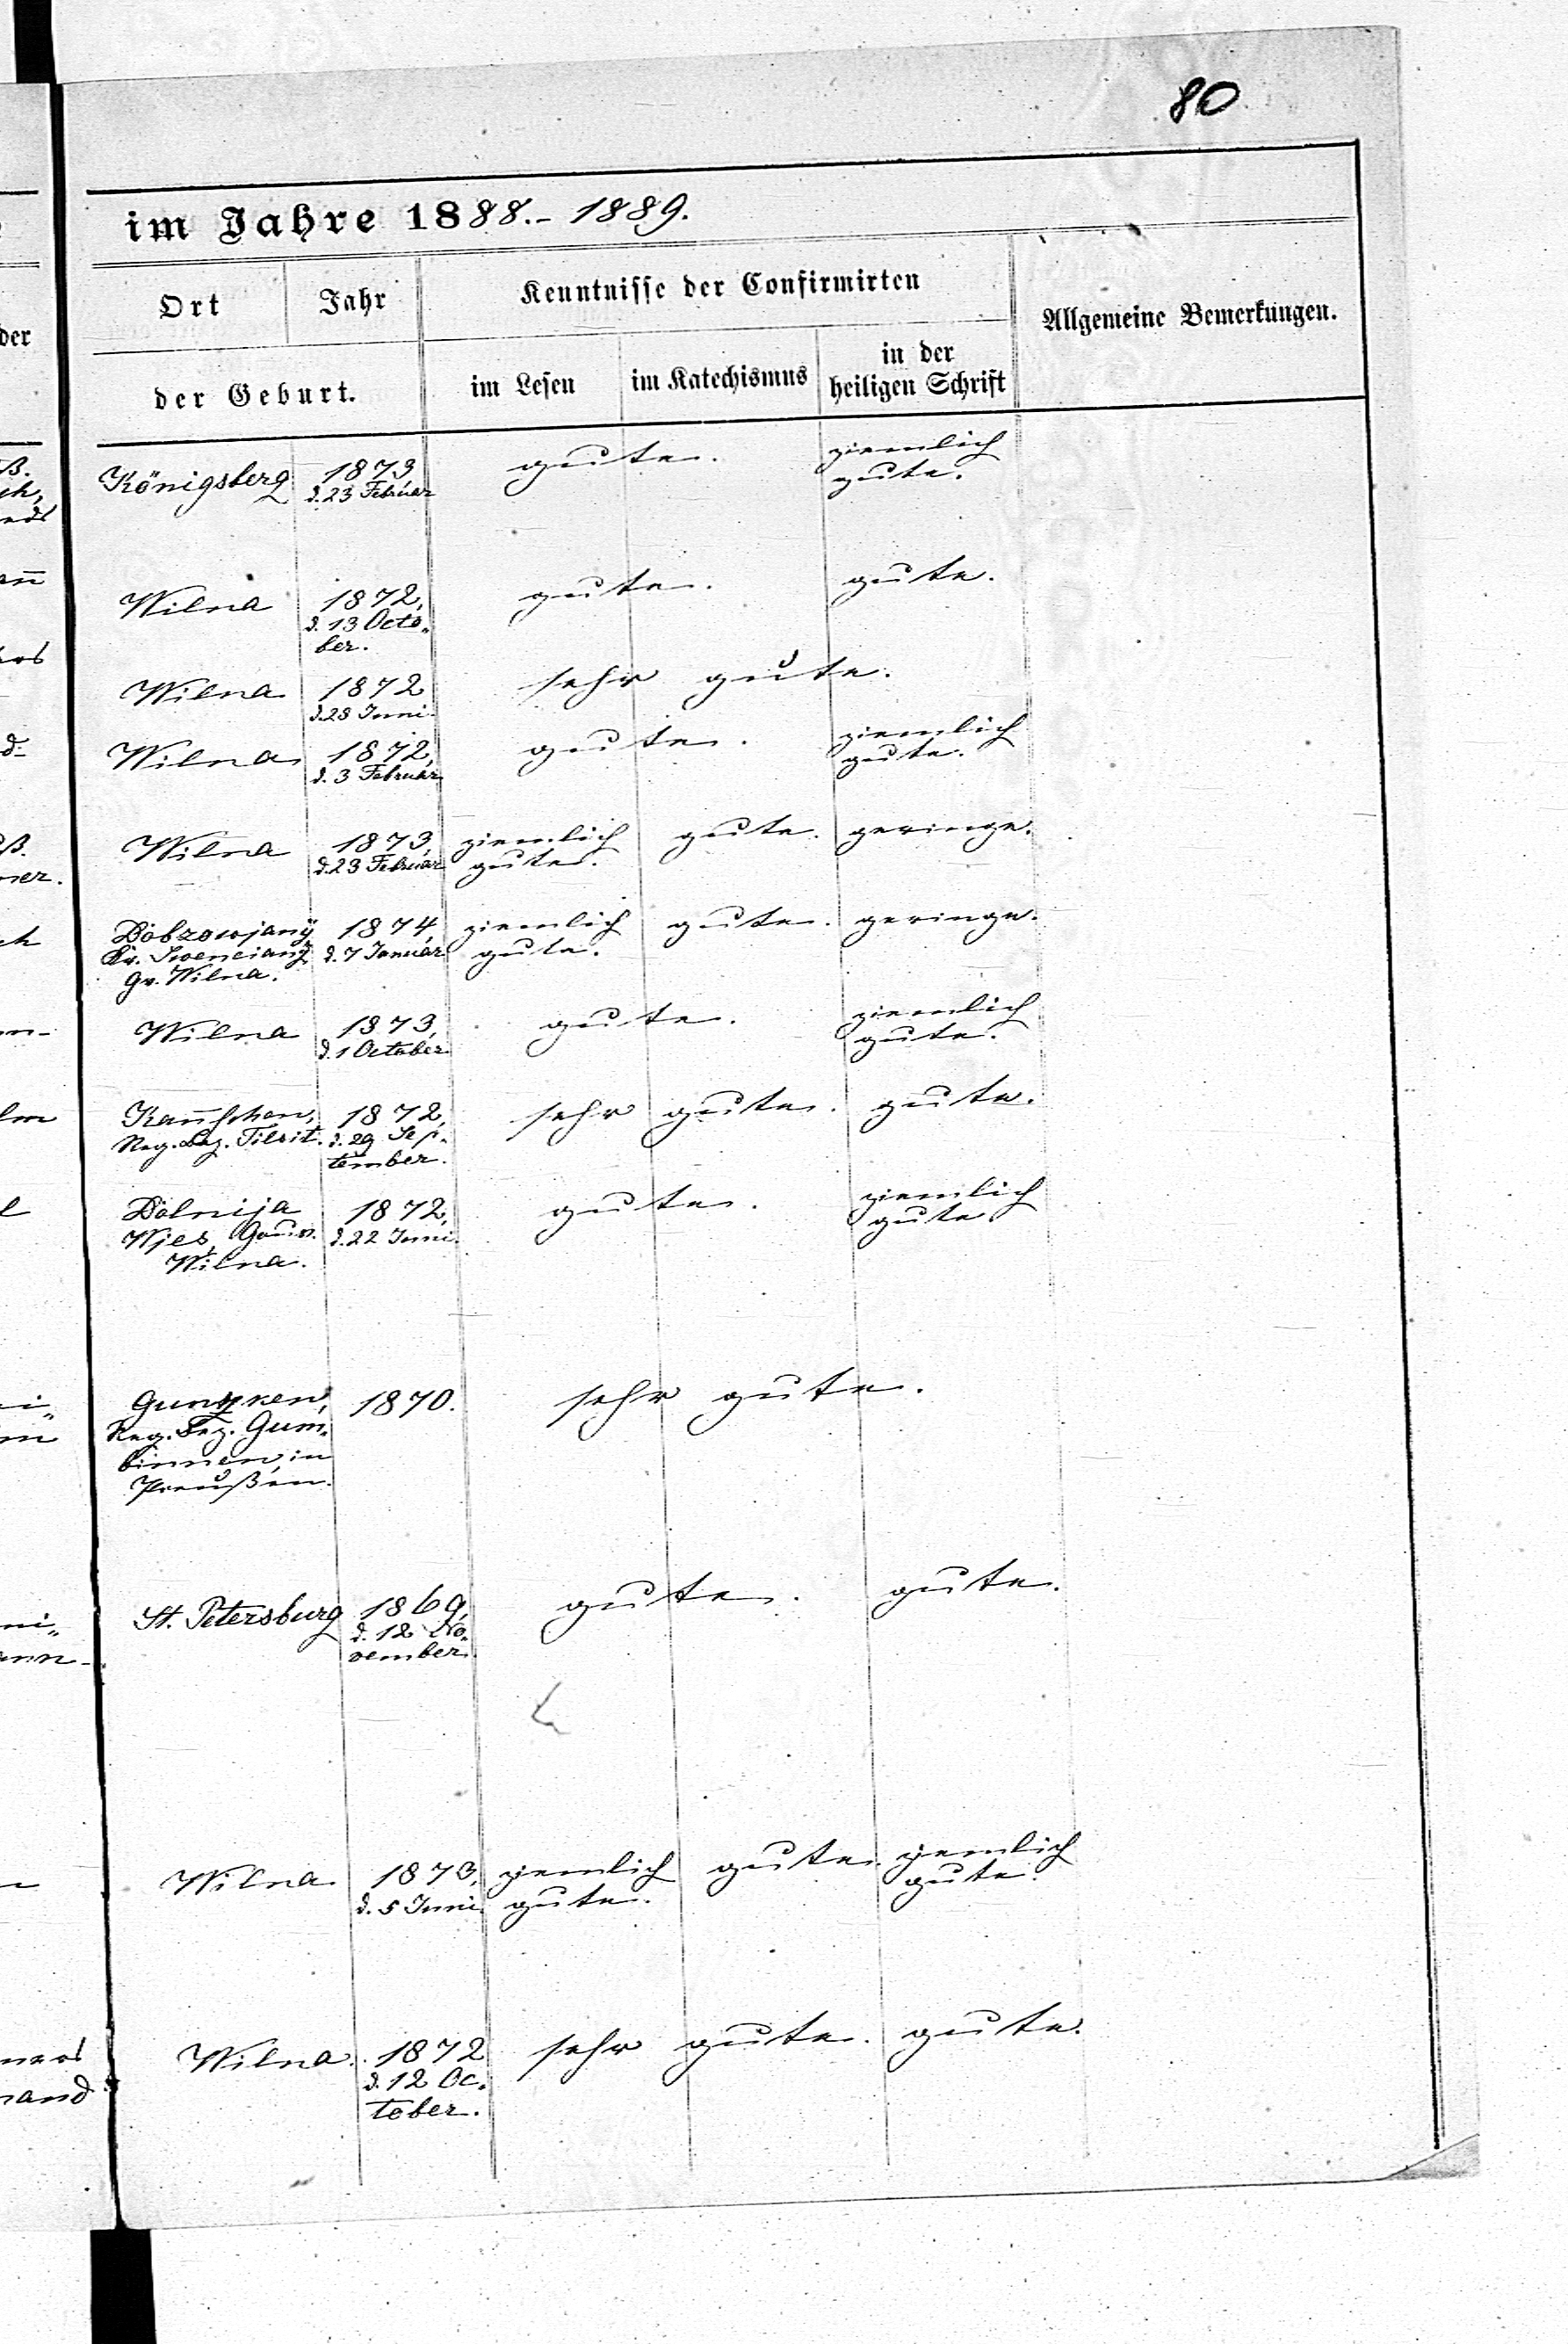 80
im Jahre 1888.- 1889.
Ort Jahr Kenntnisse der Confirmirten Allgemeine Bemerkungen.
der Geburt. im Lesen im Katechismus in der heiligen Schrift
der
Königsberg 1873 gute. ziemlich
d. 23 Februar gute.
Wilna 1872, gute. gute.
d. 13 Octo-
ber.
Wilna 1872 sehr gute.
d. 28 Juni.
Wilna 1872, gute. ziemlich
d. 3 Februar gute.
Wilna 1873, ziemlich gute. geringe.
d. 23 Februar gute.
1874, ziemlich gute. geringe.
Kr. d. 7 Januar gute.
Gv. Wilna.
Wilna 1873, gute. ziemlich
d. 1 October gute.
1872, sehr gute. gute.
Reg. Bez. Tilsit. d. 29 Sep-
tember.
Dolnija 1872, gute. ziemlich
Wjes, Gouv. d. 22 Juni. gute.
Wilna.
1870. sehr gute.
Reg. Bez. Gum-
binnen, in
Preußen.
St. Petersburg 1869, gute. gute.
d. 12 No-
vember.
Wilna 1873, ziemlich gute. ziemlich
d. 5 Juni. gute. gute.
Wilna. 1872 sehr gute. gute.
d. 12 Oc-
tober.